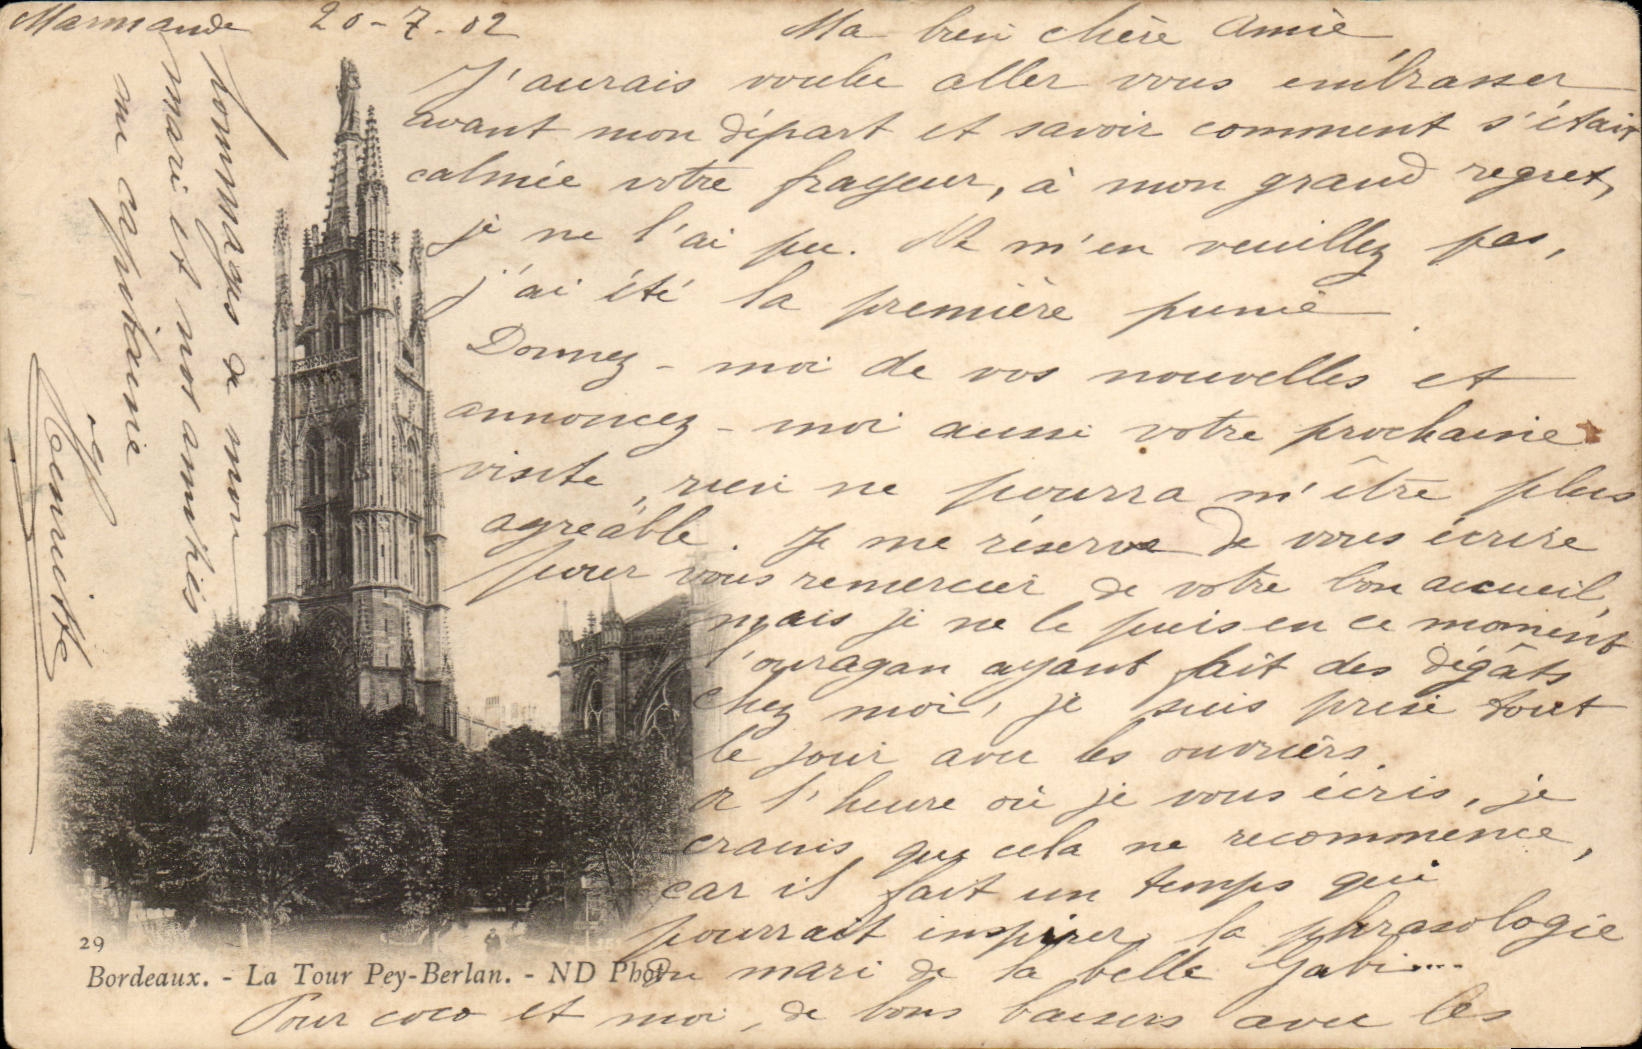 Marmande 20-7-02
Ma bien chère Amie
J'aurais voulu aller vous embrasser
avant mon départ et savoir comment s'était
calmée votre frayeur, à mon grand regret,
je ne l'ai pu. Ne m'en veuillez pas,
j'ai été la première punie
Donnez-moi de vos nouvelles et
annoncez-moi aussi votre prochaine
visite, rien ne pourra m'être plus
agréable. Je me réserve de vous écrire
pour vous remercier de votre bon accueil,
mais je ne le puis en ce moment
l'ouragan ayant fait des dégâts
chez moi, je suis prise tout
le jour avec les ouvriers.
A l'heure où je vous écris, je
crains que cela ne recommence,
car il fait un temps qui
pourrait inspirer la phrasologie
du mari de la belle Gabi....
Pour coco et moi, de bons baisers avec les
hommages de mon
mari et nos amitiés
au capitaine
Henriette
29
Bordeaux. - La Tour Pey-Berlan. - ND Phot